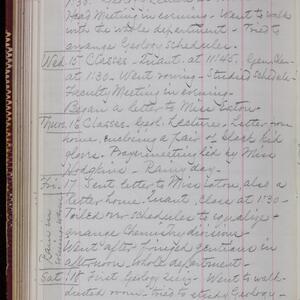 1:30.
Head Meeting in evening - Went to walk
with the whole department - Tried to
arrange Geology Schedules.
Wed. 15 Classes - at 11:45.
at 1:30. Went rowing - Studied schedule -
Faculty Meeting in evening.
Began a letter to Miss Eaton.
Thurs. 16 Classes. Geol. Lecture. Letter from
home, enclosing a pair of black kid
gloves. Prayer meeting led by Miss
Hodgkins - Rainy day.
Fri. 17 Sent letter to Miss Eaton, also a
letter home. Class at 1:30 -
Toiled over schedules to equalize
arrange Chemistry division
Went after printed sections in
afternoon. Whole department -
Rain in
Sat. 18 First Geology - Went to walk -
dusted room - tried to study Geology -